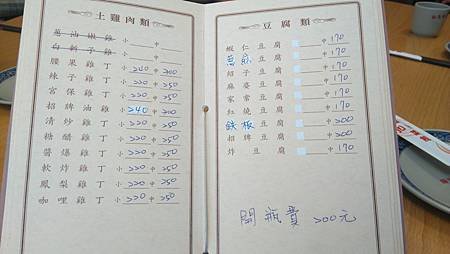 土雞肉類
蔥油嫩雞 小 中
白斬子雞 小 中
腰果雞丁 小 240 中 300
辣子雞丁 小 220 中 250
宮保雞丁 小 220 中 250
招牌油雞 小 240 中 300
清炒雞丁 小 220 中 250
糖醋雞丁 小 220 中 250
醬爆雞丁 小 220 中 250
軟炸雞丁 小 220 中 250
鳳梨雞丁 小 220 中 250
咖哩雞丁 小 220 中 250
豆腐類
蝦仁豆腐 中 170
蔥燒豆腐 中 170
紹子豆腐 中 170
麻婆豆腐 中 170
家常豆腐 中 170
紅燒豆腐 中 170
鉄板豆腐 中 200
招牌豆腐 中 200
炸豆腐 中 170
開瓶費 200元